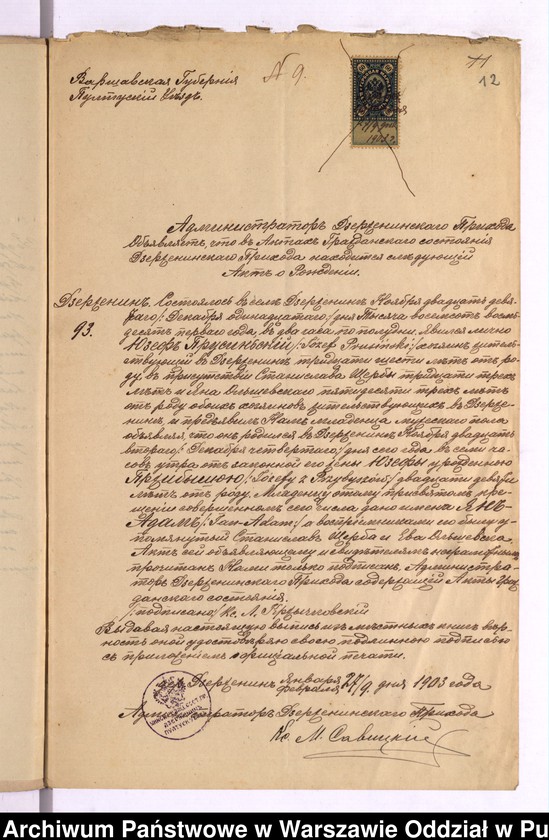 Варшавская Губернія
Пултускій Уѣздъ.
N 9.
12
Администраторъ Дзерженинскаго Прихода
Объявляетъ, что въ Актахъ Гражданскаго состоянія
Дзерженинскаго Прихода находится слѣдующій
Актъ о Рожденіи.
Дзерженинъ. Состоялось въ селѣ Дзерженинъ Ноября двадцать девя-
таго /: Декабря одинадцатаго :/ дня Тысяча восемсотъ восемь
93.
десятъ перваго года, въ два часа по полудни. Явился лично
Юзефъ Прусиньскій /: Józef Prusiński :/ хозяинъ жительс-
твующій въ Дзерженинѣ тридцати шести лѣтъ отъ ро-
ду, въ присутствіи Станислава Щербы тридцати трехъ
лѣтъ и Яна Ольшевскаго пятидесяти трехъ лѣтъ
отъ роду обоихъ хозяиновъ жительствующихъ въ Дзержe-
нинѣ, и предъявилъ Намъ младенца мужескаго пола
объявляя, что онъ родился въ Дзерженинѣ Ноября двадцать
втораго /: Декабря четвертаго :/ дня сего года въ семь ча-
совъ утра отъ законной его жены Юзефы урожденной
Пржибышъ /: Józefy z Przybyszów :/ двадцати девяти
лѣтъ отъ роду. Младенцу этому при святомъ кре-
щеніи совершенномъ сего числа дано имена Янъ-
Адамъ /: Jan-Adam :/ а воспріемниками его были у-
помянутый Станиславъ Щерба и Ева Ольшевска.
Актъ сей объявляющему и свидѣтелямъ неграмотнымъ
прочитанъ Нами только подписанъ. Администра-
торъ Дзерженинскаго Прихода содержащій Акты Граж-
данскаго состоянія.
/ подписано / Кс. Л.
Выдавая настоящую выпись изъ мѣстныхъ книгъ вѣр-
ность оной удостовѣряю своею подлинною подписью
съ приложеніемъ оффиціальной печати.
Дзерженинъ Января 27 / Февраля 9. дня 1903 года
Администраторъ Дзерженинскаго Прихода
Кс. М. Савицкій
Archiwum Państwowe w Warszawie Oddział w Pu